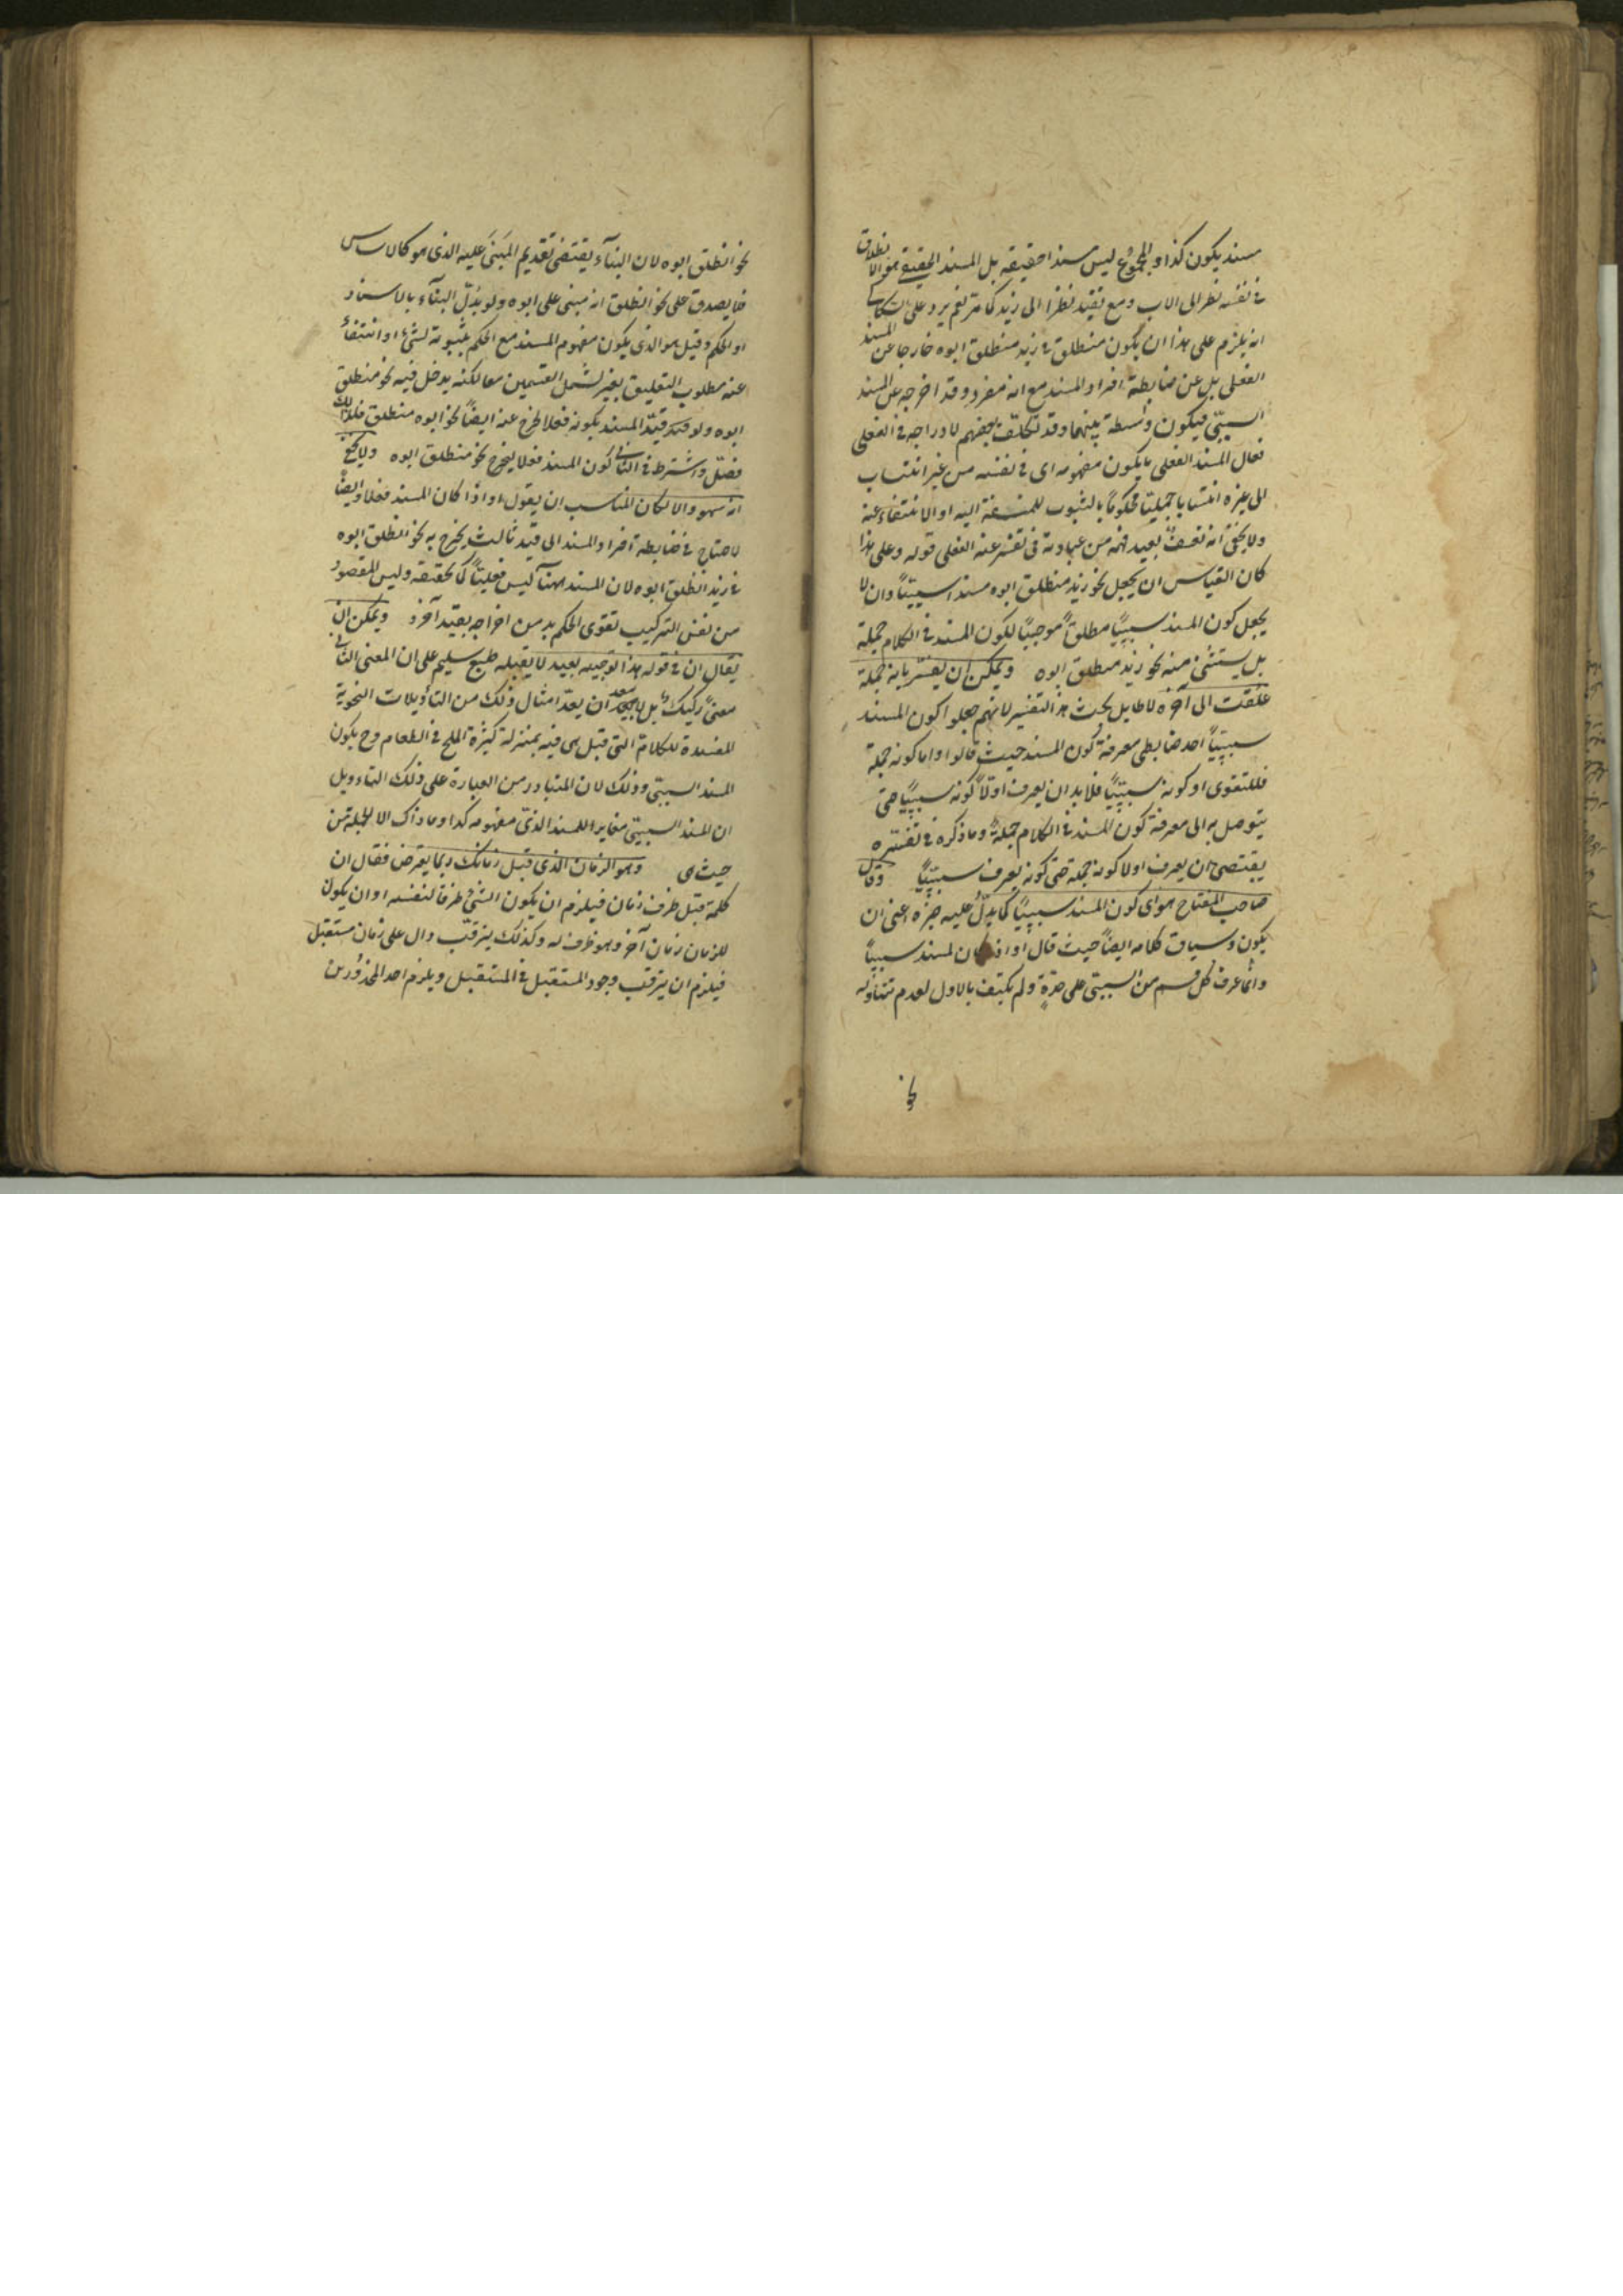 مسند يكون كذا والمجموع ليس مسندا حقيقة بل المسند الحقيقي هو الانطلاق
في نفسه نظرا الى الاب ومع تقيد نظرا الى زيد كما مر نعم يرد على السكاكي
انه يلزم على هذا ان يكون منطلق في زيد منطلق ابوه خارجا عن المسند
الفعلي بل عن ضابطة افراد المسند مع انه مفرد وقد اخرجه عن المسند
السببي فيكون واسطة بينهما وقد تكلف بعضهم لادراجه في الفعلي
فقال المسند الفعلي ما يكون مفهومه اى في نفسه من غير انتساب
الى غيره انتسابا جمليا محكوما بالثبوت للمسند اليه او الانتفاء عنه
ولا يخفى انه تعسف بعيد فهمه من عبارته في تفسير الفعلي قوله وعلى هذا
كان القياس ان يجعل نحو زيد منطلق ابوه مسندا سببيا وان لا
يجعل كون المسند سببيا مطلقا موجبا لكون المسند في الكلام جملة
بل يستثنى منه نحو زيد منطلق ابوه ويمكن ان يفسر بانه جملة
علقت الى آخره لا طايل تحت هذا التفسير لانهم جعلوا كون المسند
سببيا احد ضابطى معرفة كون المسند حيث قالوا واما كونه جملة
فللتقوى او كونه سببيا فلا بد ان يعرف اولا كونه سببيا حتى
يتوصل به الى معرفة كون المسند في الكلام جملة وما ذكره في تفسيره
يقتضى ان يعرف اولا كونه جملة حتى كونه يعرف سببيا وقال
صاحب المفتاح هو اى كون المسند سببيا كما يدل عليه خبره اعنى ان
يكون وسياق كلامه ايضا حيث قال او اذا كان المسند سببيا
وانما عرف كل قسم من السببي على حدة ولم يكتف بالاول لعدم تناوله
نحو
نحو انطلق ابوه لان البناء يقتضى تقديم المبنى عليه الذى هو كالاساس
فما يصدق على نحو انطلق انه مبنى على ابوه ولو بدل البناء بالاسناد
او الحكم وقيل هو الذى يكون مفهوم المسند مع الحكم بثبوته لشئ او انتفائه
عنه مطلوب التعليق بغير لشمل القسمين معا لكنه يدخل فيه نحو منطلق
ابوه ولو قيد المسند بكونه فعلا لخرج عنه ايضا نحو ابوه منطلق فلذلك
فصل واشترط في الثانى كون المسند فعلا ليخرج نحو منطلق ابوه ولا يخفى
انه سهو والا لكان المناسب ان يقول او اذا كان المسند فعلا وايضا
لاحتاج في ضابطة افراد المسند الى قيد ثالث يخرج به نحو انطلق ابوه
في زيد انطلق ابوه لان المسند ههنا ليس فعليا كما تحققه وليس المقصود
من نفس التركيب تقوى الحكم بد من اخراجه بقيد آخر ويمكن ان
يقال ان في قوله هذا توجيه بعيد لا يقبله طبع سليم على ان المعنى الثانى
معنى ركيك بل لا يبعد ان يعد امثال ذلك من التأويلات النحوية
المفسدة للكلام التى قيل هى فيه بمنزلة كثرة الملح في الطعام وح يكون
المسند السببي وذلك لان المتبادر من العبارة على ذلك التاويل
ان المسند السببي مغايرا للمسند الذى مفهومه كذا وما ذاك الا الجملة من
حيث هى وهو الزمان الذى قبل زمانك ربما يعترض فقال ان
كلمة قبل ظرف زمان فيلزم ان يكون الشئ ظرفا لنفسه او ان يكون
للزمان زمان آخر وهو ظرف له وكذلك يترقب دال على زمان مستقبل
فيلزم ان يترقب وجود المستقبل في المستقبل ويلزم احد المحذورين